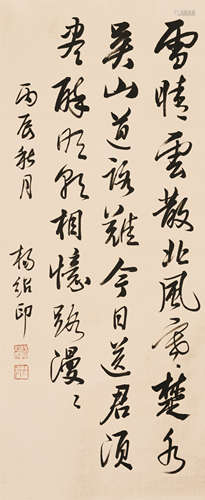 雪晴雲散北風寒楚水
吳山道路難今日送君須
盡醉明朝相憶路漫〻
丙辰秋月
楊紹印